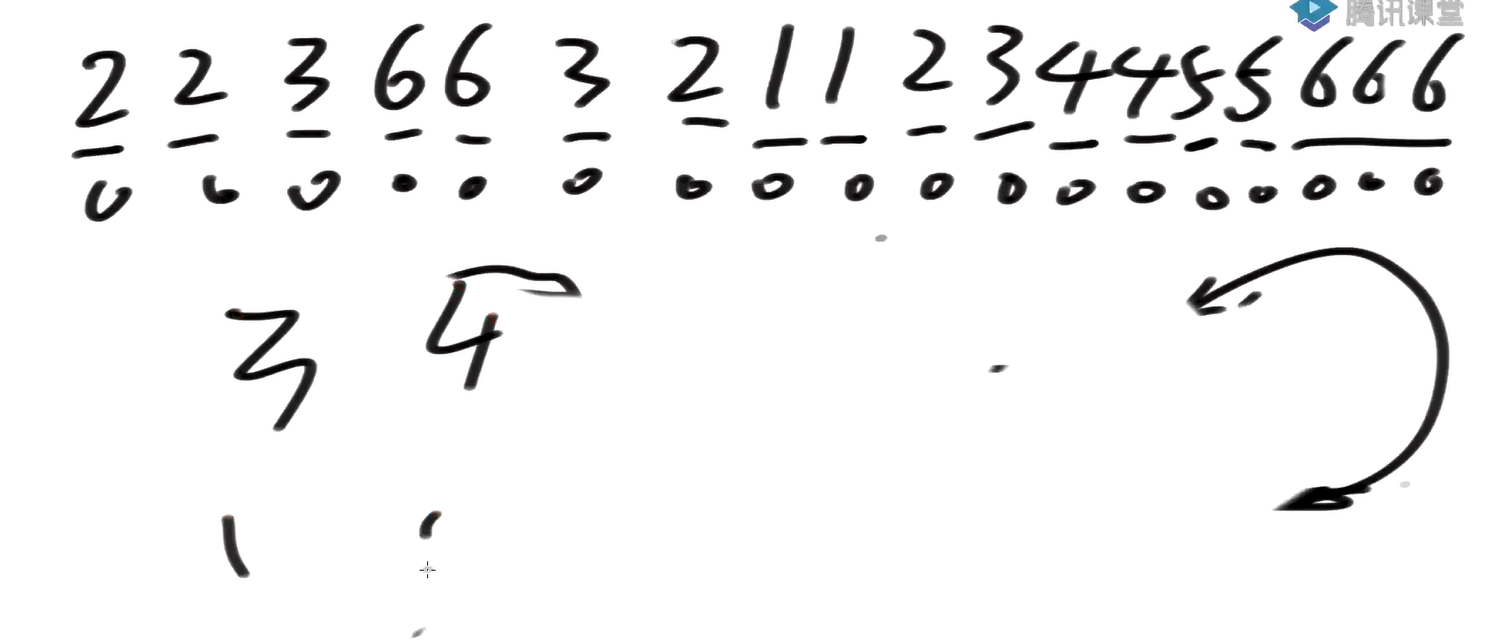 腾讯课堂
2 2 3 6 6 3 2 1 1 2 3 4 4 5 5 6 6 6
0 0 0 0 0 0 0 0 0 0 0 0 0 0 0 0 0 0
3 4
1